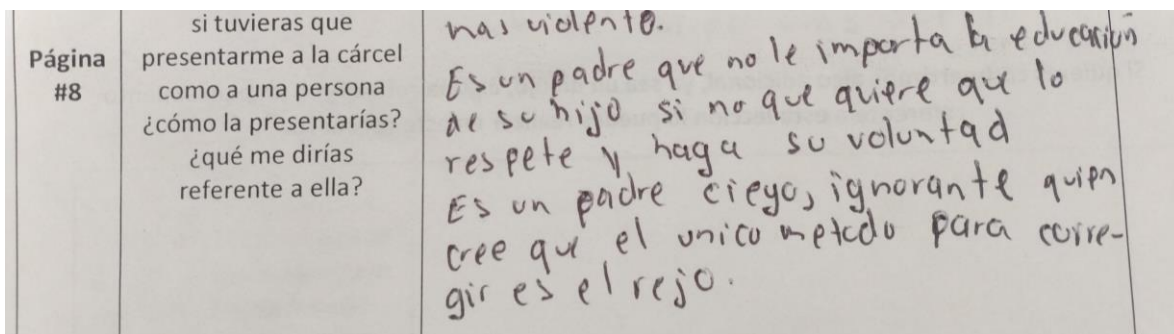 Página
#8
si tuvieras que
presentarme a la cárcel
como a una persona
¿cómo la presentarías?
¿qué me dirías
referente a ella?
mas violento.
Es un padre que no le importa la educación
de su hijo si no que quiere que lo
respete y haga su voluntad
Es un padre ciego, ignorante quien
cree que el unico metodo para corre-
gir es el rejo.